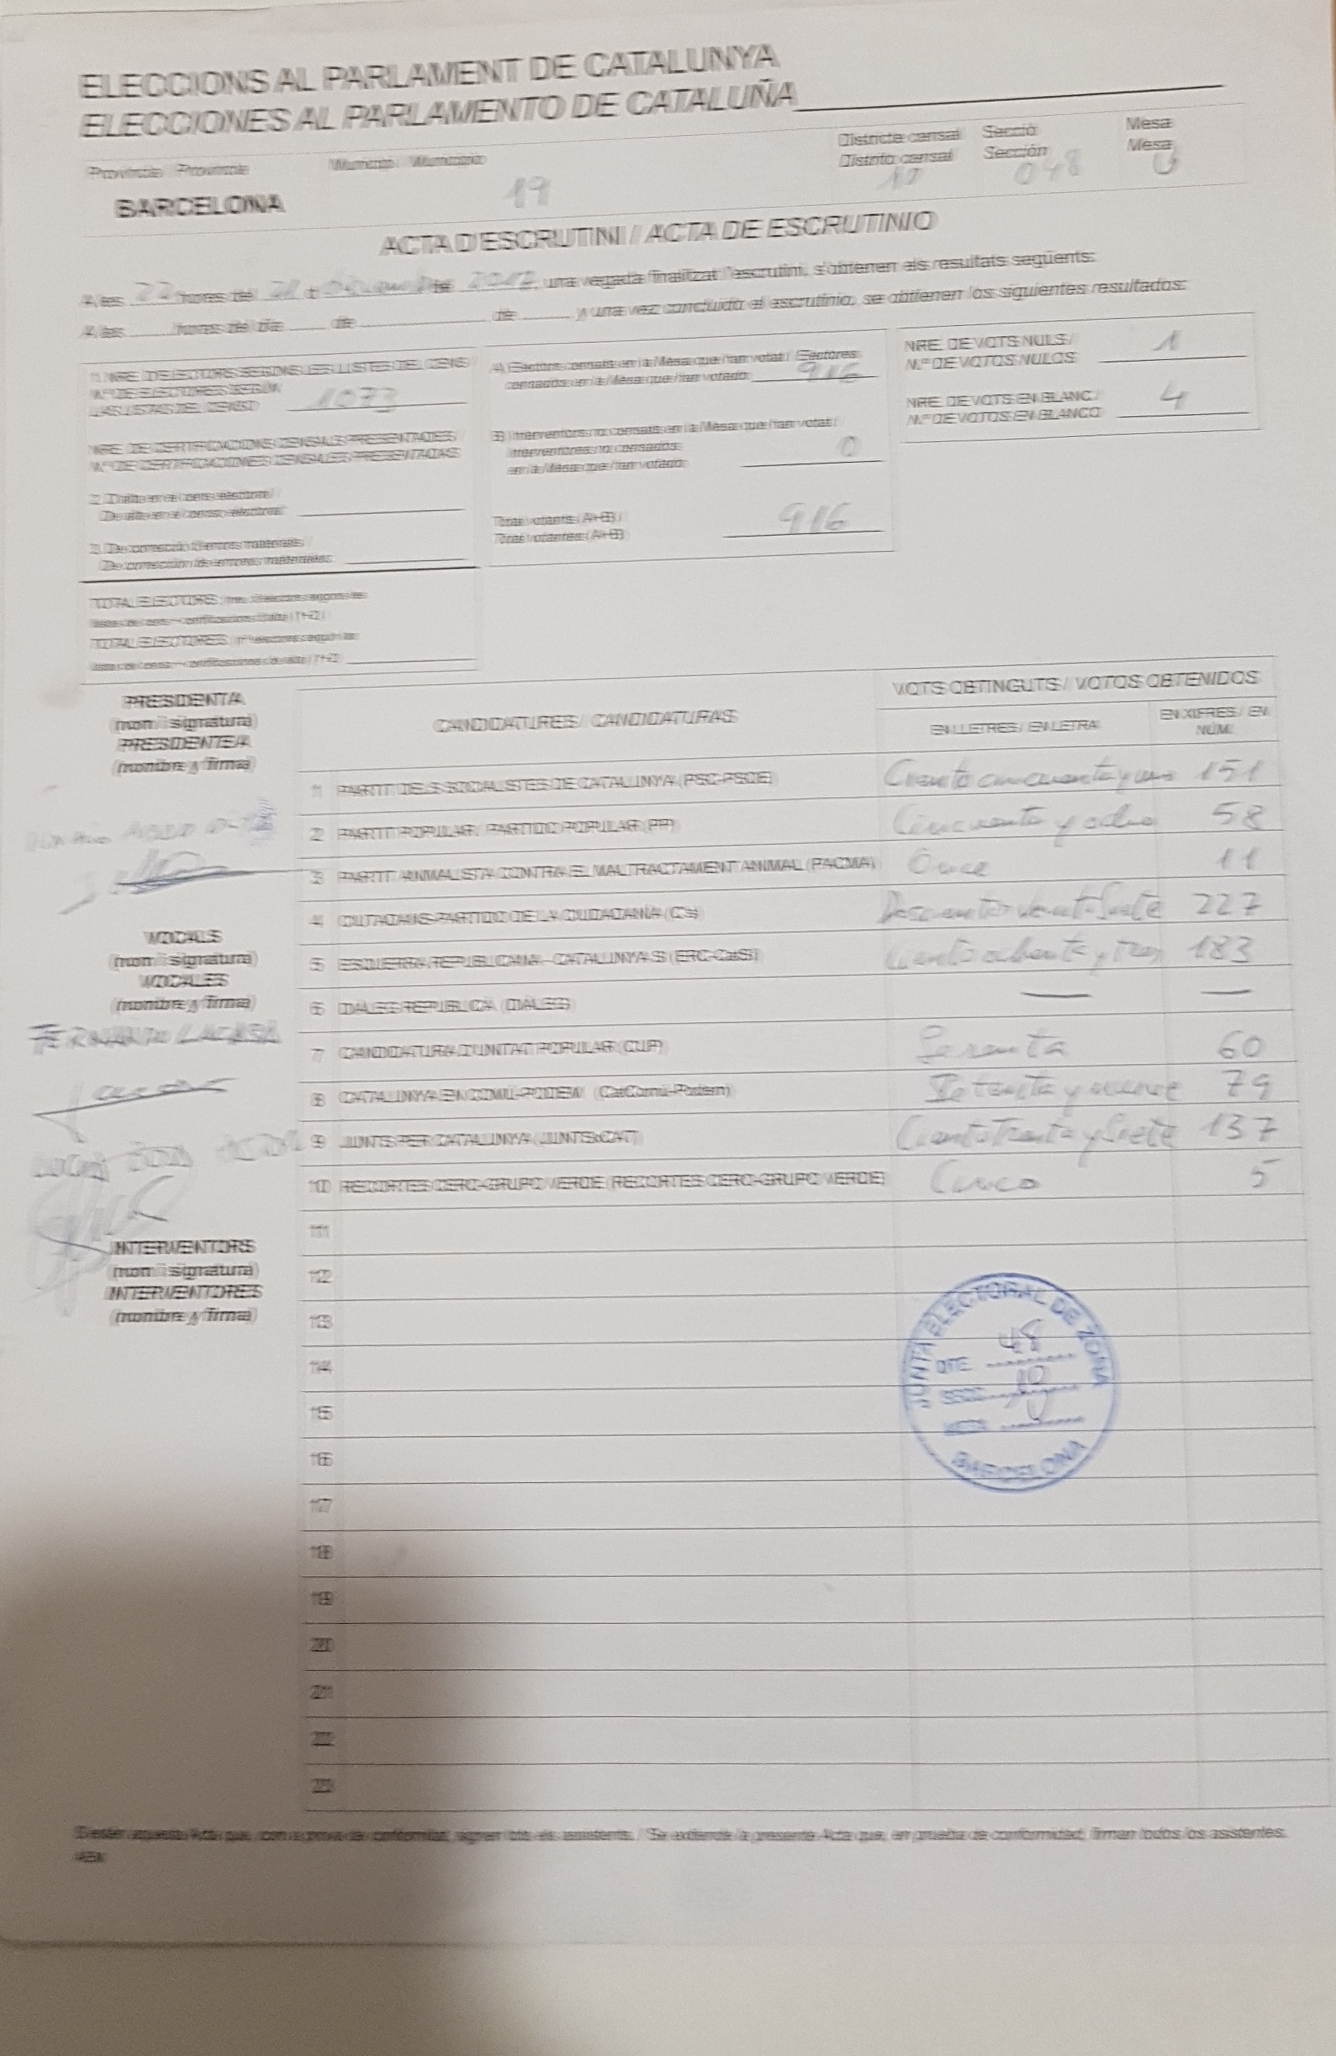 ELECCIONS AL PARLAMENT DE CATALUNYA
ELECCIONES AL PARLAMENTO DE CATALUÑA
Província / Provincia Municipi / Municipio Districte censal Secció Mesa
Distrito censal Sección Mesa
BARCELONA 19 10 048 U
ACTA D'ESCRUTINI / ACTA DE ESCRUTINIO
A les 22 hores del 21 de 2017, una vegada finalitzat l'escrutini, s'obtenen els resultats següents:
A las hores del día de de y una vez concluido el escrutinio, se obtienen los siguientes resultados:
1. NRE. D'ELECTORS SEGONS LES LLISTES DEL CENS /
N.º DE ELECTORES SEGÚN
LAS LISTAS DEL CENSO 1073
NRE. DE CERTIFICACIONS CENSALS PRESENTADES /
N.º DE CERTIFICACIONES CENSALES PRESENTADAS
2. D'alta en el cens electoral /
De alta en el censo electoral
3. De correcció d'errors materials /
De corrección de errores materiales
TOTAL ELECTORS
TOTAL ELECTORES
A) Electors censats en la Mesa que han votat / Electores
censados en la Mesa que han votado 916
B) Interventors no censats en la Mesa que han votat /
Interventores no censados
en la Mesa que han votado 0
Total votants (A+B) /
Total votantes (A+B) 916
NRE. DE VOTS NULS /
N.º DE VOTOS NULOS 1
NRE. DE VOTS EN BLANC /
N.º DE VOTOS EN BLANCO 4
PRESIDENT/A
(nom i signatura)
PRESIDENTE/A
(nombre y firma)
VOCALS
(nom i signatura)
VOCALES
(nombre y firma)
FERNANDO
INTERVENTORS
(nom i signatura)
INTERVENTORES
(nombre y firma)
CANDIDATURES / CANDIDATURAS VOTS OBTINGUTS / VOTOS OBTENIDOS
EN LLETRES / EN LETRA EN XIFRES / EN NÚM.
1 PARTIT DELS SOCIALISTES DE CATALUNYA (PSC-PSOE) Ciento cincuenta y uno 151
2 PARTIT POPULAR / PARTIDO POPULAR (PP) Cincuenta y ocho 58
3 PARTIT ANIMALISTA CONTRA EL MALTRACTAMENT ANIMAL (PACMA) Once 11
4 CIUTADANS-PARTIDO DE LA CIUDADANÍA (C's) 227
5 ESQUERRA REPUBLICANA - CATALUNYA SÍ (ERC-CatSí) Ciento ochenta y tres 183
6 DIÀLEG REPUBLICÀ (DIÀLEG) — —
7 CANDIDATURA D'UNITAT POPULAR (CUP) Sesenta 60
8 CATALUNYA EN COMÚ-PODEM (CatComú-Podem) Setenta y nueve 79
9 JUNTS PER CATALUNYA (JUNTSxCAT) Ciento Treinta y Siete 137
10 RECORTES CERO-GRUPO VERDE (RECORTES CERO-GRUPO VERDE) Cinco 5
11
12
13
14
15
16
17
18
19
20
21
22
23
JUNTA ELECTORAL DE ZONA
DTE. 48
SECC. 10
MESA U
BARCELONA
S'estén aquesta Acta que, com a prova de conformitat, signen tots els assistents. / Se extiende la presente Acta que, en prueba de conformidad, firman todos los asistentes.